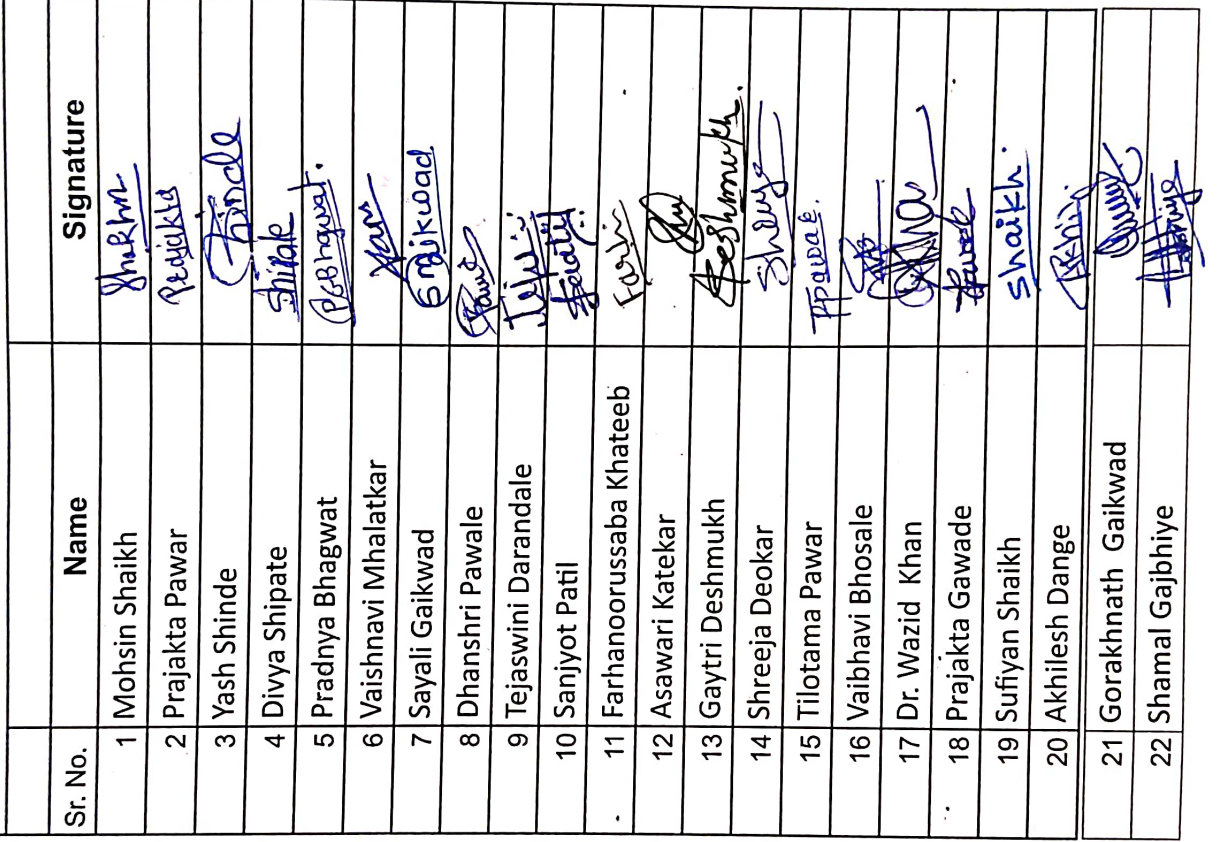 Sr. No. Name Signature
1 Mohsin Shaikh Shaikhm
2 Prajakta Pawar Prajakta
3 Yash Shinde Shinde
4 Divya Shipate
5 Pradnya Bhagwat PGBhagwat.
6 Vaishnavi Mhalatkar
7 Sayali Gaikwad Gaikwad
8 Dhanshri Pawale
9 Tejaswini Darandale
10 Sanjyot Patil
11 Farhanoorussaba Khateeb Farhi
12 Asawari Katekar
13 Gaytri Deshmukh Deshmukh.
14 Shreeja Deokar
15 Tilotama Pawar TPawar.
16 Vaibhavi Bhosale
17 Dr. Wazid Khan
18 Prajakta Gawade
19 Sufiyan Shaikh Shaikh.
20 Akhilesh Dange
21 Gorakhnath Gaikwad
22 Shamal Gajbhiye